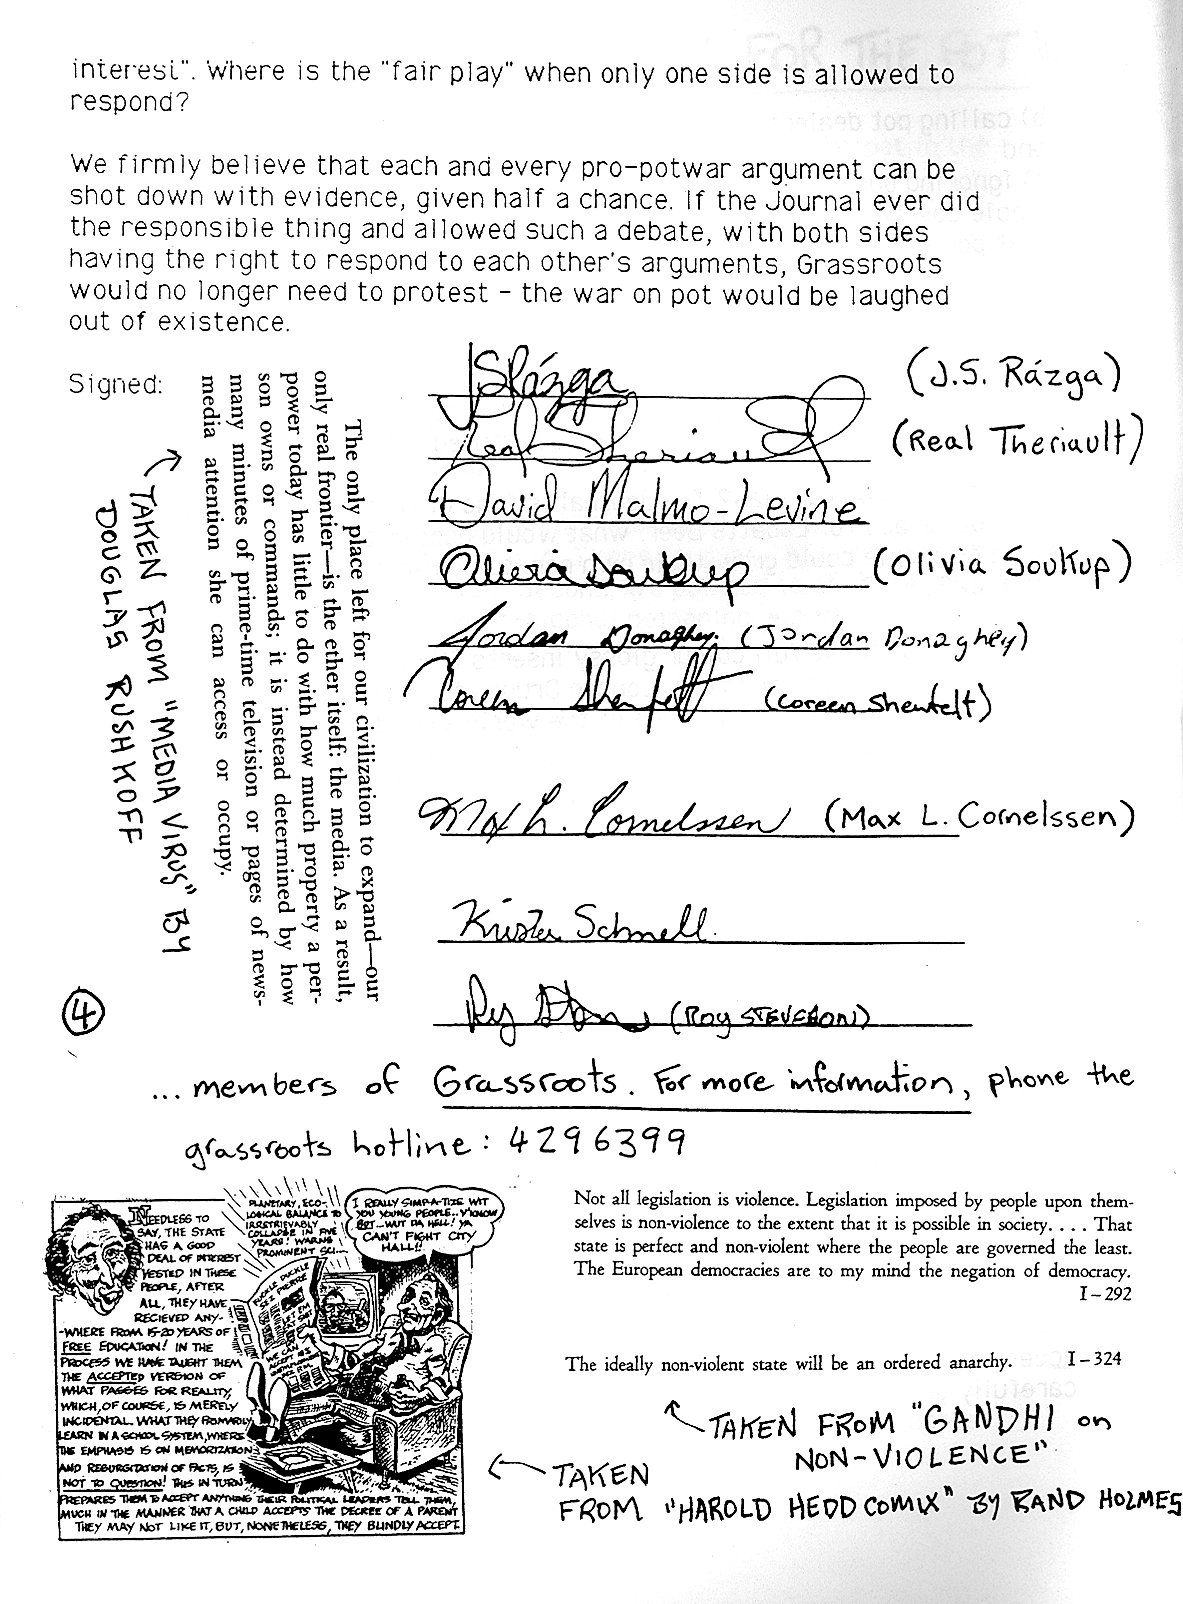 interest". Where is the "fair play" when only one side is allowed to
respond?
We firmly believe that each and every pro-potwar argument can be
shot down with evidence, given half a chance. If the Journal ever did
the responsible thing and allowed such a debate, with both sides
having the right to respond to each other's arguments, Grassroots
would no longer need to protest - the war on pot would be laughed
out of existence.
Signed:
JSRázga (J.S. Rázga)
Real Theriault (Real Theriault)
David Malmo-Levine
Olivia Soukup (Olivia Soukup)
Jordan Donaghey. (Jordan Donaghey)
Coreen Shenfelt (Coreen Shenfelt)
Max L. Cornelssen (Max L. Cornelssen)
Krista Schnell.
(Roy STEVESON)
The only place left for our civilization to expand—our
only real frontier—is the ether itself: the media. As a result,
power today has little to do with how much property a per-
son owns or commands; it is instead determined by how
many minutes of prime-time television or pages of news-
media attention she can access or occupy.
TAKEN FROM "MEDIA VIRUS" BY
DOUGLAS RUSHKOFF
4
... members of Grassroots. For more information, phone the
grassroots hotline: 4296399
NEEDLESS TO
SAY, THE STATE
HAS A GOOD
DEAL OF INTEREST
VESTED IN THESE
PEOPLE, AFTER
ALL, THEY HAVE
RECIEVED ANY-
-WHERE FROM 15-20 YEARS OF
FREE EDUCATION! IN THE
PROCESS WE HAVE TAUGHT THEM
THE ACCEPTED VERSION OF
WHAT PASSES FOR REALITY,
WHICH, OF COURSE, IS MERELY
INCIDENTAL. WHAT THEY
LEARN IN A SCHOOL SYSTEM, WHERE
THE EMPHASIS IS ON MEMORIZATION
AND REGURGITATION OF FACTS, IS
NOT TO QUESTION! THIS IN TURN
PREPARES THEM TO ACCEPT ANYTHING THEIR POLITICAL LEADERS TELL THEM,
MUCH IN THE MANNER THAT A CHILD ACCEPTS THE DECREE OF A PARENT.
THEY MAY NOT LIKE IT, BUT, NONETHELESS, THEY BLINDLY ACCEPT.
PLANETARY, ECO-
LOGICAL BALANCE TO
IRRETRIEVABLY
COLLAPSE IN FIVE
YEARS! WARNS
PROMINENT SCI....
I REALLY SIMP-A-TIZE WIT
YOU YOUNG PEOPLE..Y'KNOW
BUT...WUT DA HELL! YA
CAN'T FIGHT CITY
HALL!!
Not all legislation is violence. Legislation imposed by people upon them-
selves is non-violence to the extent that it is possible in society. . . . That
state is perfect and non-violent where the people are governed the least.
The European democracies are to my mind the negation of democracy.
I-292
The ideally non-violent state will be an ordered anarchy. I-324
TAKEN FROM "GANDHI on
NON-VIOLENCE"
TAKEN
FROM "HAROLD HEDD COMIX" BY RAND HOLMES